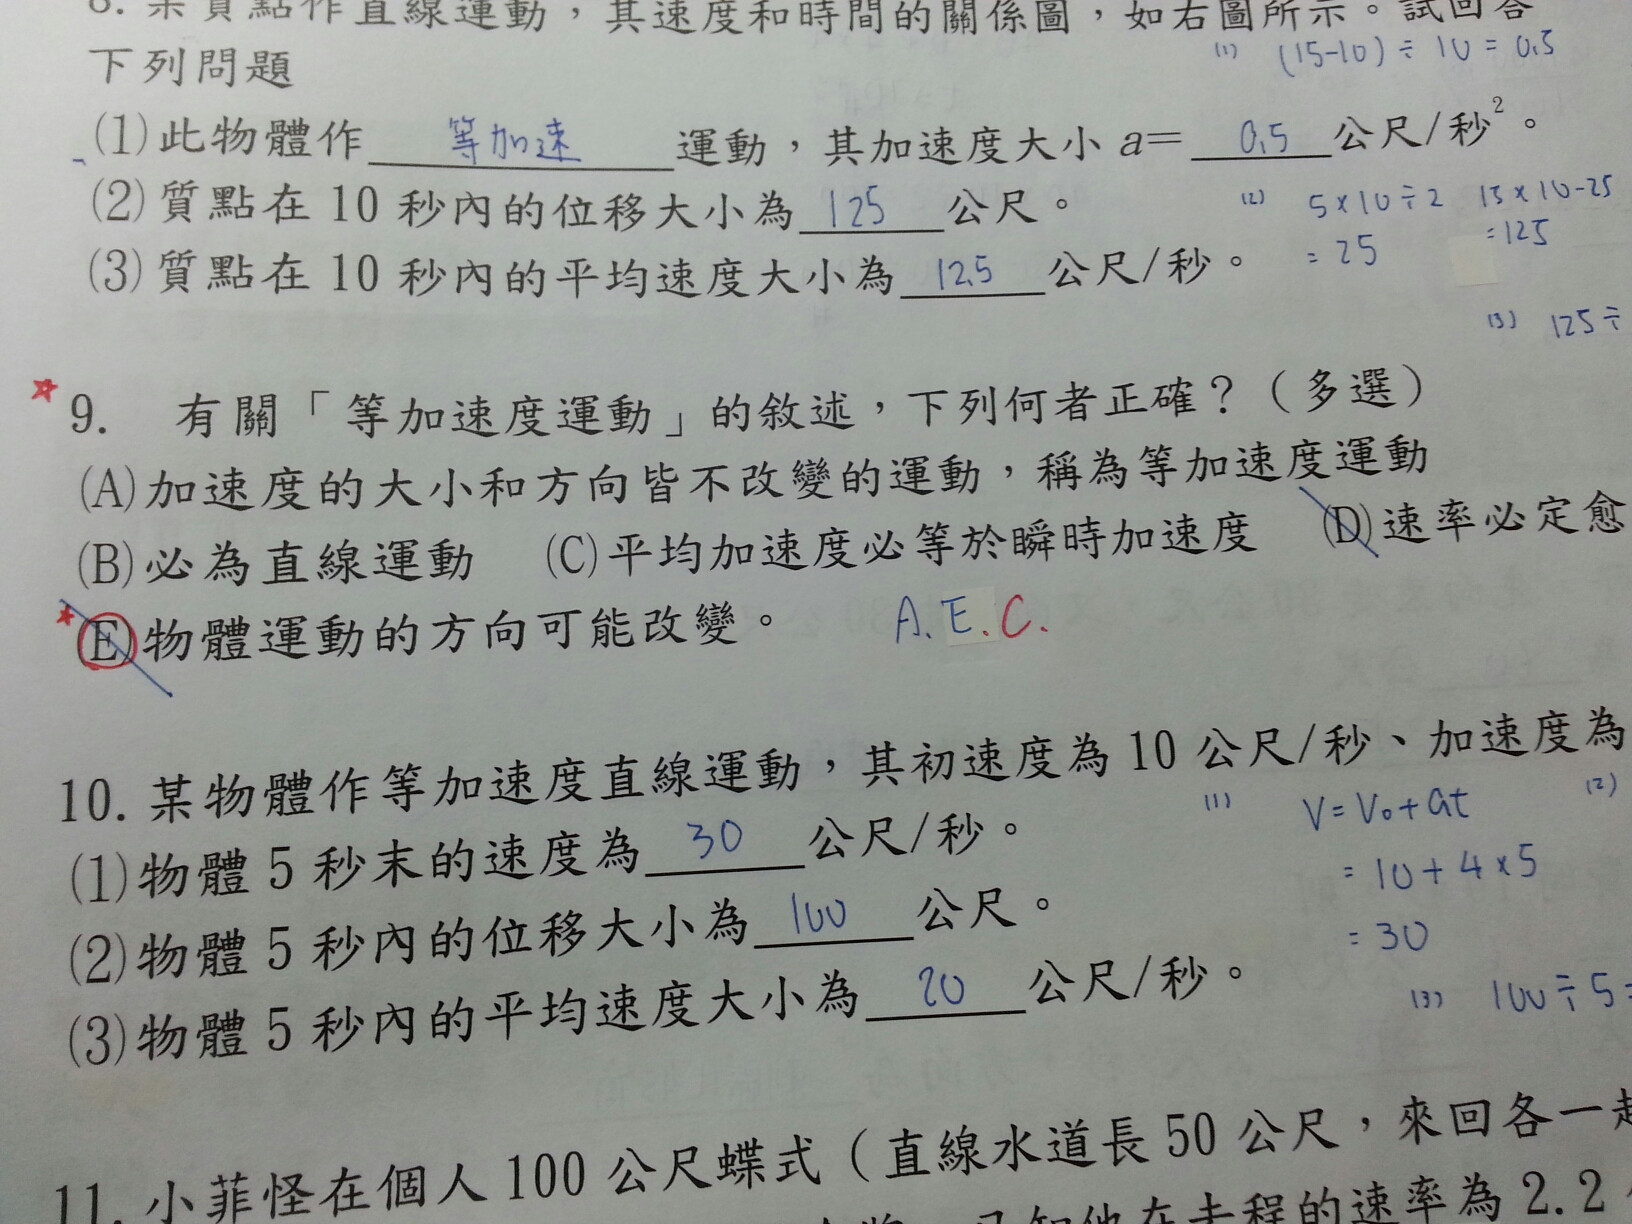 8. 某質點作直線運動，其速度和時間的關係圖，如右圖所示。試回答
下列問題
(1) (15-10) ÷ 10 = 0.5
(1)此物體作 等加速 運動，其加速度大小 a= 0.5 公尺/秒²。
(2)質點在 10 秒內的位移大小為 125 公尺。
(2) 5×10÷2 15×10-25
= 25 =125
(3)質點在 10 秒內的平均速度大小為 12.5 公尺/秒。
(3) 125÷
9. 有關「等加速度運動」的敘述，下列何者正確？（多選）
(A)加速度的大小和方向皆不改變的運動，稱為等加速度運動
(B)必為直線運動 (C)平均加速度必等於瞬時加速度 (D)速率必定愈
(E)物體運動的方向可能改變。 A. E. C.
10. 某物體作等加速度直線運動，其初速度為 10 公尺/秒、加速度為
(1) V=V₀+at (2)
(1)物體 5 秒末的速度為 30 公尺/秒。
= 10+4×5
(2)物體 5 秒內的位移大小為 100 公尺。
= 30
(3)物體 5 秒內的平均速度大小為 20 公尺/秒。
(3) 100÷5=
11. 小菲怪在個人 100 公尺蝶式（直線水道長 50 公尺，來回各一趟
已知他在去程的速率為 2.2